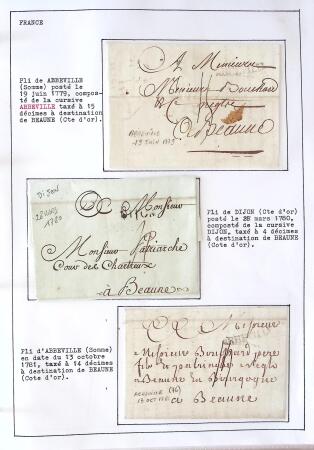 FRANCE
Pli de ABBEVILLE
(Somme) posté le
19 juin 1779, compos-
té de la cursive
ABBEVILLE taxé à 15
décimes à destination
de BEAUNE (Cte d'or).
A Messieurs
Messieurs Bouchard
à Beaune
ABBEVILLE
19 JUIN 1779
DIJON
28 MARS
1780
A Monsieur
DIJON
Monsieur Patriarche
Cour des Chartreux
à Beaune
Pli de DIJON (Cte d'or)
posté le 28 mars 1780,
composté de la cursive
DIJON, taxé à 4 décimes
à destination de BEAUNE
(Cote d'or).
Pli d'ABBEVILLE (Somme)
en date du 13 octobre
1781, taxé à 14 décimes
à destination de BEAUNE
(Cote d'or).
A Messieurs
Messieurs Bouchard pere
fils &
à Beaune en Bourgogne
ABBEVILLE (76)
13 OCT 1781
à Beaune